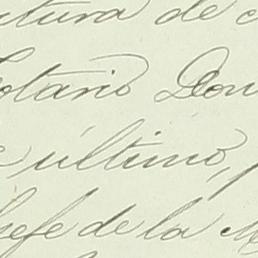 ctura de
otario Don
último,
Jefe de la